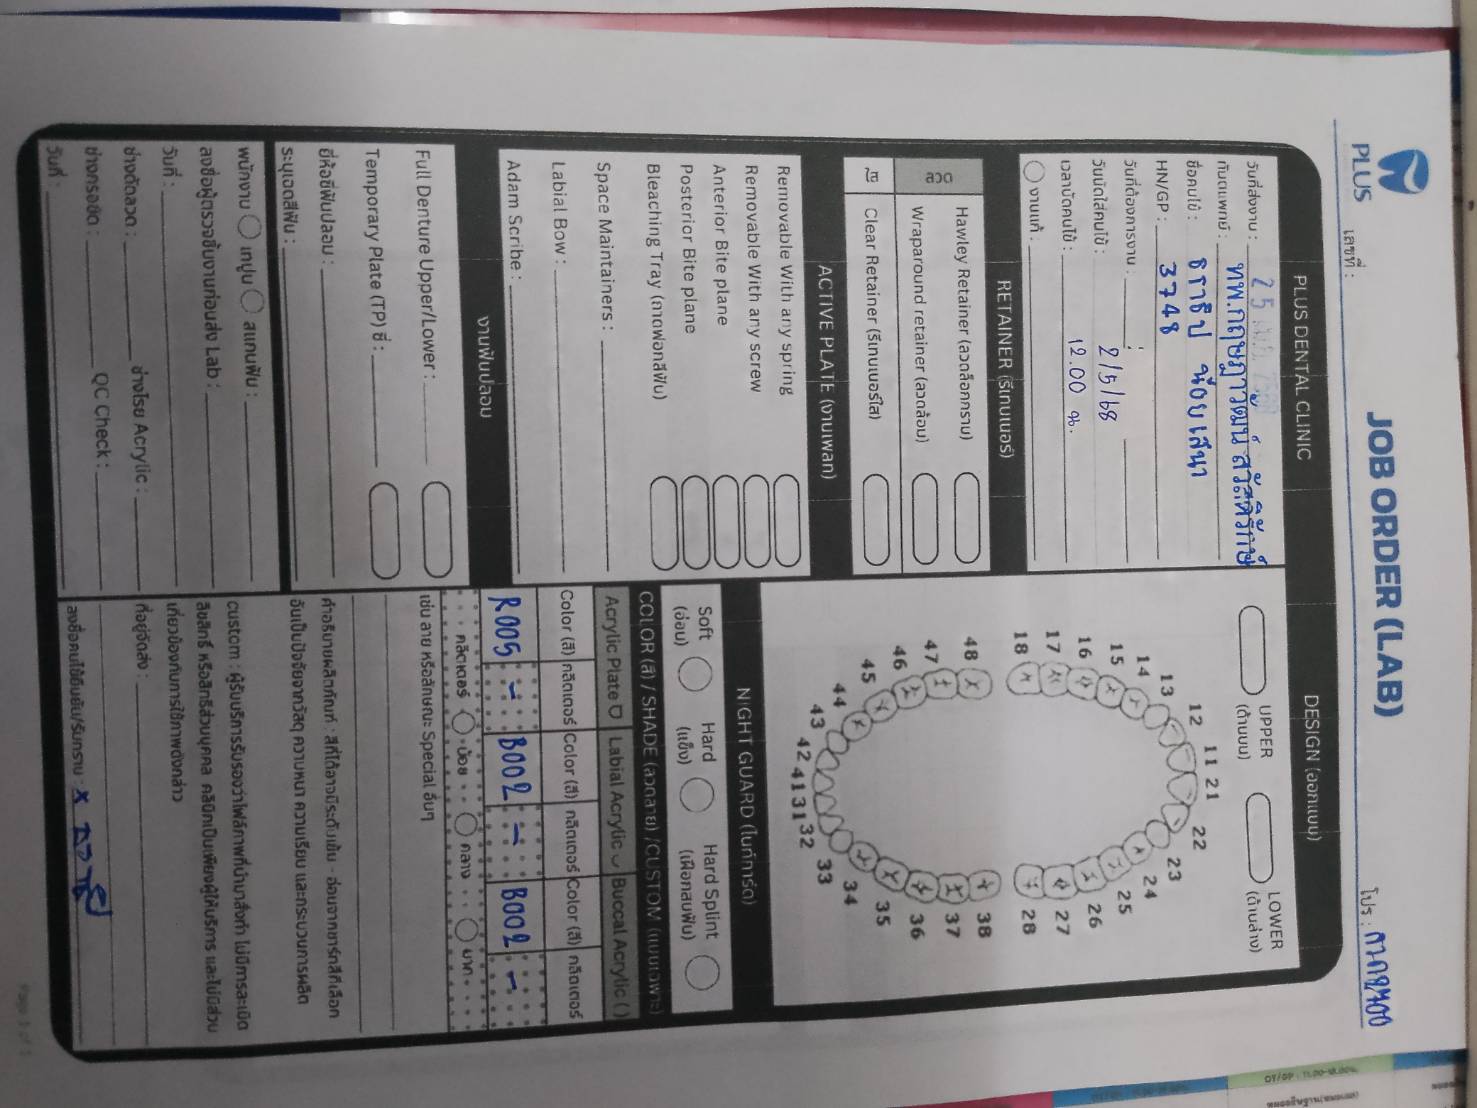 PLUS
JOB ORDER (LAB)
เลขที่ :
โปร :
PLUS DENTAL CLINIC
วันที่ส่งงาน : 25
ทันตแพทย์ : ทพ.กฤษฎาวฒน์ สวัสดิรักษ์
ชื่อคนไข้ : ธราธิป น้อยเสนา
HN/GP : 3748
วันที่ต้องการงาน :
วันนัดใส่คนไข้ : 2/5/68
เวลานัดคนไข้ : 12.00 น.
งานแก้ :
RETAINER (รีเทนเนอร์)
ลวด
Hawley Retainer (ลวดล็อกกราม)
Wraparound retainer (ลวดล้อม)
ใส
Clear Retainer (รีเทนเนอร์ใส)
ACTIVE PLATE (งานเพลท)
Removable With any spring
Removable With any screw
Anterior Bite plane
Posterior Bite plane
Bleaching Tray (ถาดฟอกสีฟัน)
Space Maintainers :
Labial Bow :
Adam Scribe :
งานฟันปลอม
Full Denture Upper/Lower :
Temporary Plate (TP) ซี่ :
ยี่ห้อซี่ฟันปลอม :
ระบุเฉดสีฟัน :
พนักงาน เทปูน สแกนฟัน :
ลงชื่อผู้ตรวจชิ้นงานก่อนส่ง Lab :
วันที่ :
ช่างดัดลวด : ช่างโรย Acrylic :
ช่างกรอขัด : QC Check :
วันที่ :
DESIGN (ออกแบบ)
UPPER (ด้านบน)
LOWER (ด้านล่าง)
11 21
12 22
13 23
14 24
15 25
16 26
17 27
18 28
48 38
47 37
46 36
45 35
44 34
43 33
42 41 31 32
NIGHT GUARD (ไนท์การ์ด)
Soft (อ่อน)
Hard (แข็ง)
Hard Splint (เฝือกสบฟัน)
COLOR (สี) / SHADE (ลวดลาย) /CUSTOM (แบบเฉพาะ)
Acrylic Plate Labial Acrylic Buccal Acrylic ( )
Color (สี) กลิตเตอร์ Color (สี) กลิตเตอร์ Color (สี) กลิตเตอร์
R005 - B002 - B002 -
กลิตเตอร์ น้อย กลาง มาก
เช่น ลาย หรือลักษณะ Special อื่นๆ
คำอธิบายผลิตภัณฑ์ : สีที่ได้อาจมีระดับเข้ม - อ่อนจากชาร์ทสีที่เลือก
อันเป็นปัจจัยจากวัสดุ ความหนา ความเรียบ และกระบวนการผลิต
custom : ผู้รับบริการรับรองว่าไฟล์ภาพที่นำมาสั่งทำ ไม่มีการละเมิด
ลิขสิทธิ์ หรือสิทธิส่วนบุคคล คลินิกเป็นเพียงผู้ให้บริการ และไม่มีส่วน
เกี่ยวข้องกับการใช้ภาพดังกล่าว
ที่อยู่จัดส่ง :
ลงชื่อคนไข้ยืนยัน/รับทราบ : x
Page 1 of 1